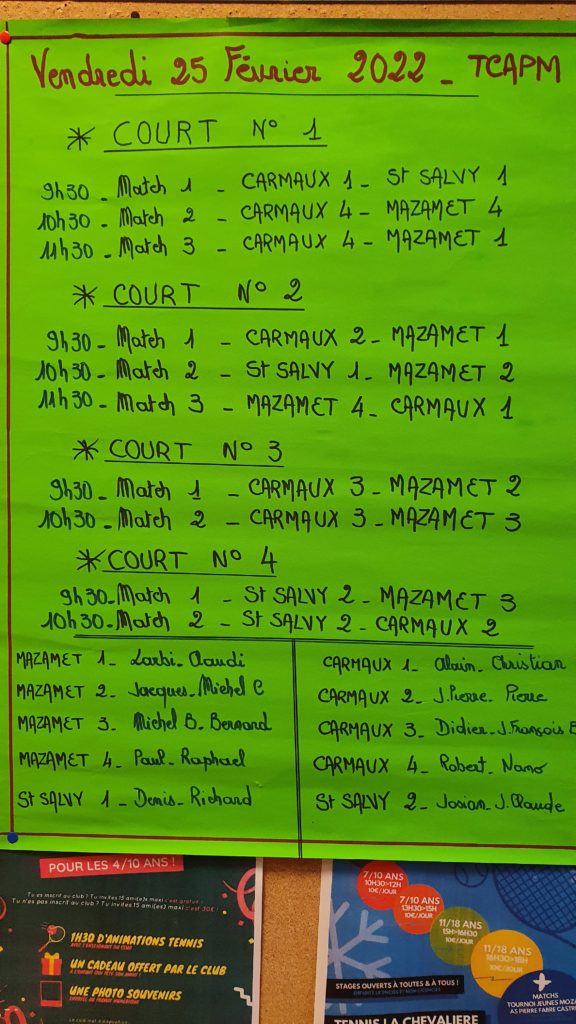 Vendredi 25 Février 2022 - TCAPM
* COURT N° 1
9h30 - Match 1 - CARMAUX 1 - St SALVY 1
10h30 - Match 2 - CARMAUX 4 - MAZAMET 4
11h30 - Match 3 - CARMAUX 4 - MAZAMET 1
* COURT N° 2
9h30 - Match 1 - CARMAUX 2 - MAZAMET 1
10h30 - Match 2 - St SALVY 1 - MAZAMET 2
11h30 - Match 3 - MAZAMET 4 - CARMAUX 1
* COURT N° 3
9h30 - Match 1 - CARMAUX 3 - MAZAMET 2
10h30 - Match 2 - CARMAUX 3 - MAZAMET 3
* COURT N° 4
9h30 - Match 1 - St SALVY 2 - MAZAMET 3
10h30 - Match 2 - St SALVY 2 - CARMAUX 2
MAZAMET 1 - Larbi - Claudi
MAZAMET 2 - Jacques - Michel C
MAZAMET 3 - Michel B - Bernard
MAZAMET 4 - Paul - Raphael
St SALVY 1 - Denis - Richard
CARMAUX 1 - Alain - Christian
CARMAUX 2 - J.Pierre - Pierre
CARMAUX 3 - Didier - J.François
CARMAUX 4 - Robert - Nano
St SALVY 2 - Josian - J.Claude
POUR LES 4/10 ANS !
Tu es inscrit au club ? Tu invites 15 ami(e)s maxi c'est gratuit !
Tu n'es pas inscrit au club ? Tu invites 15 ami(es) maxi c'est 30€ !
1H30 D'ANIMATIONS TENNIS
UN CADEAU OFFERT PAR LE CLUB
UNE PHOTO SOUVENIRS
7/10 ANS
10H30>12H
10€/JOUR
7/10 ANS
13H30>15H
10€/JOUR
11/18 ANS
15H>16H30
10€/JOUR
11/18 ANS
16H30>18H
10€/JOUR
STAGES OUVERTS À TOUTES & À TOUS !
MATCHS
TOURNOI JEUNES MOZA
AS PIERRE FABRE CASTR
TENNIS LA CHEVALIERE